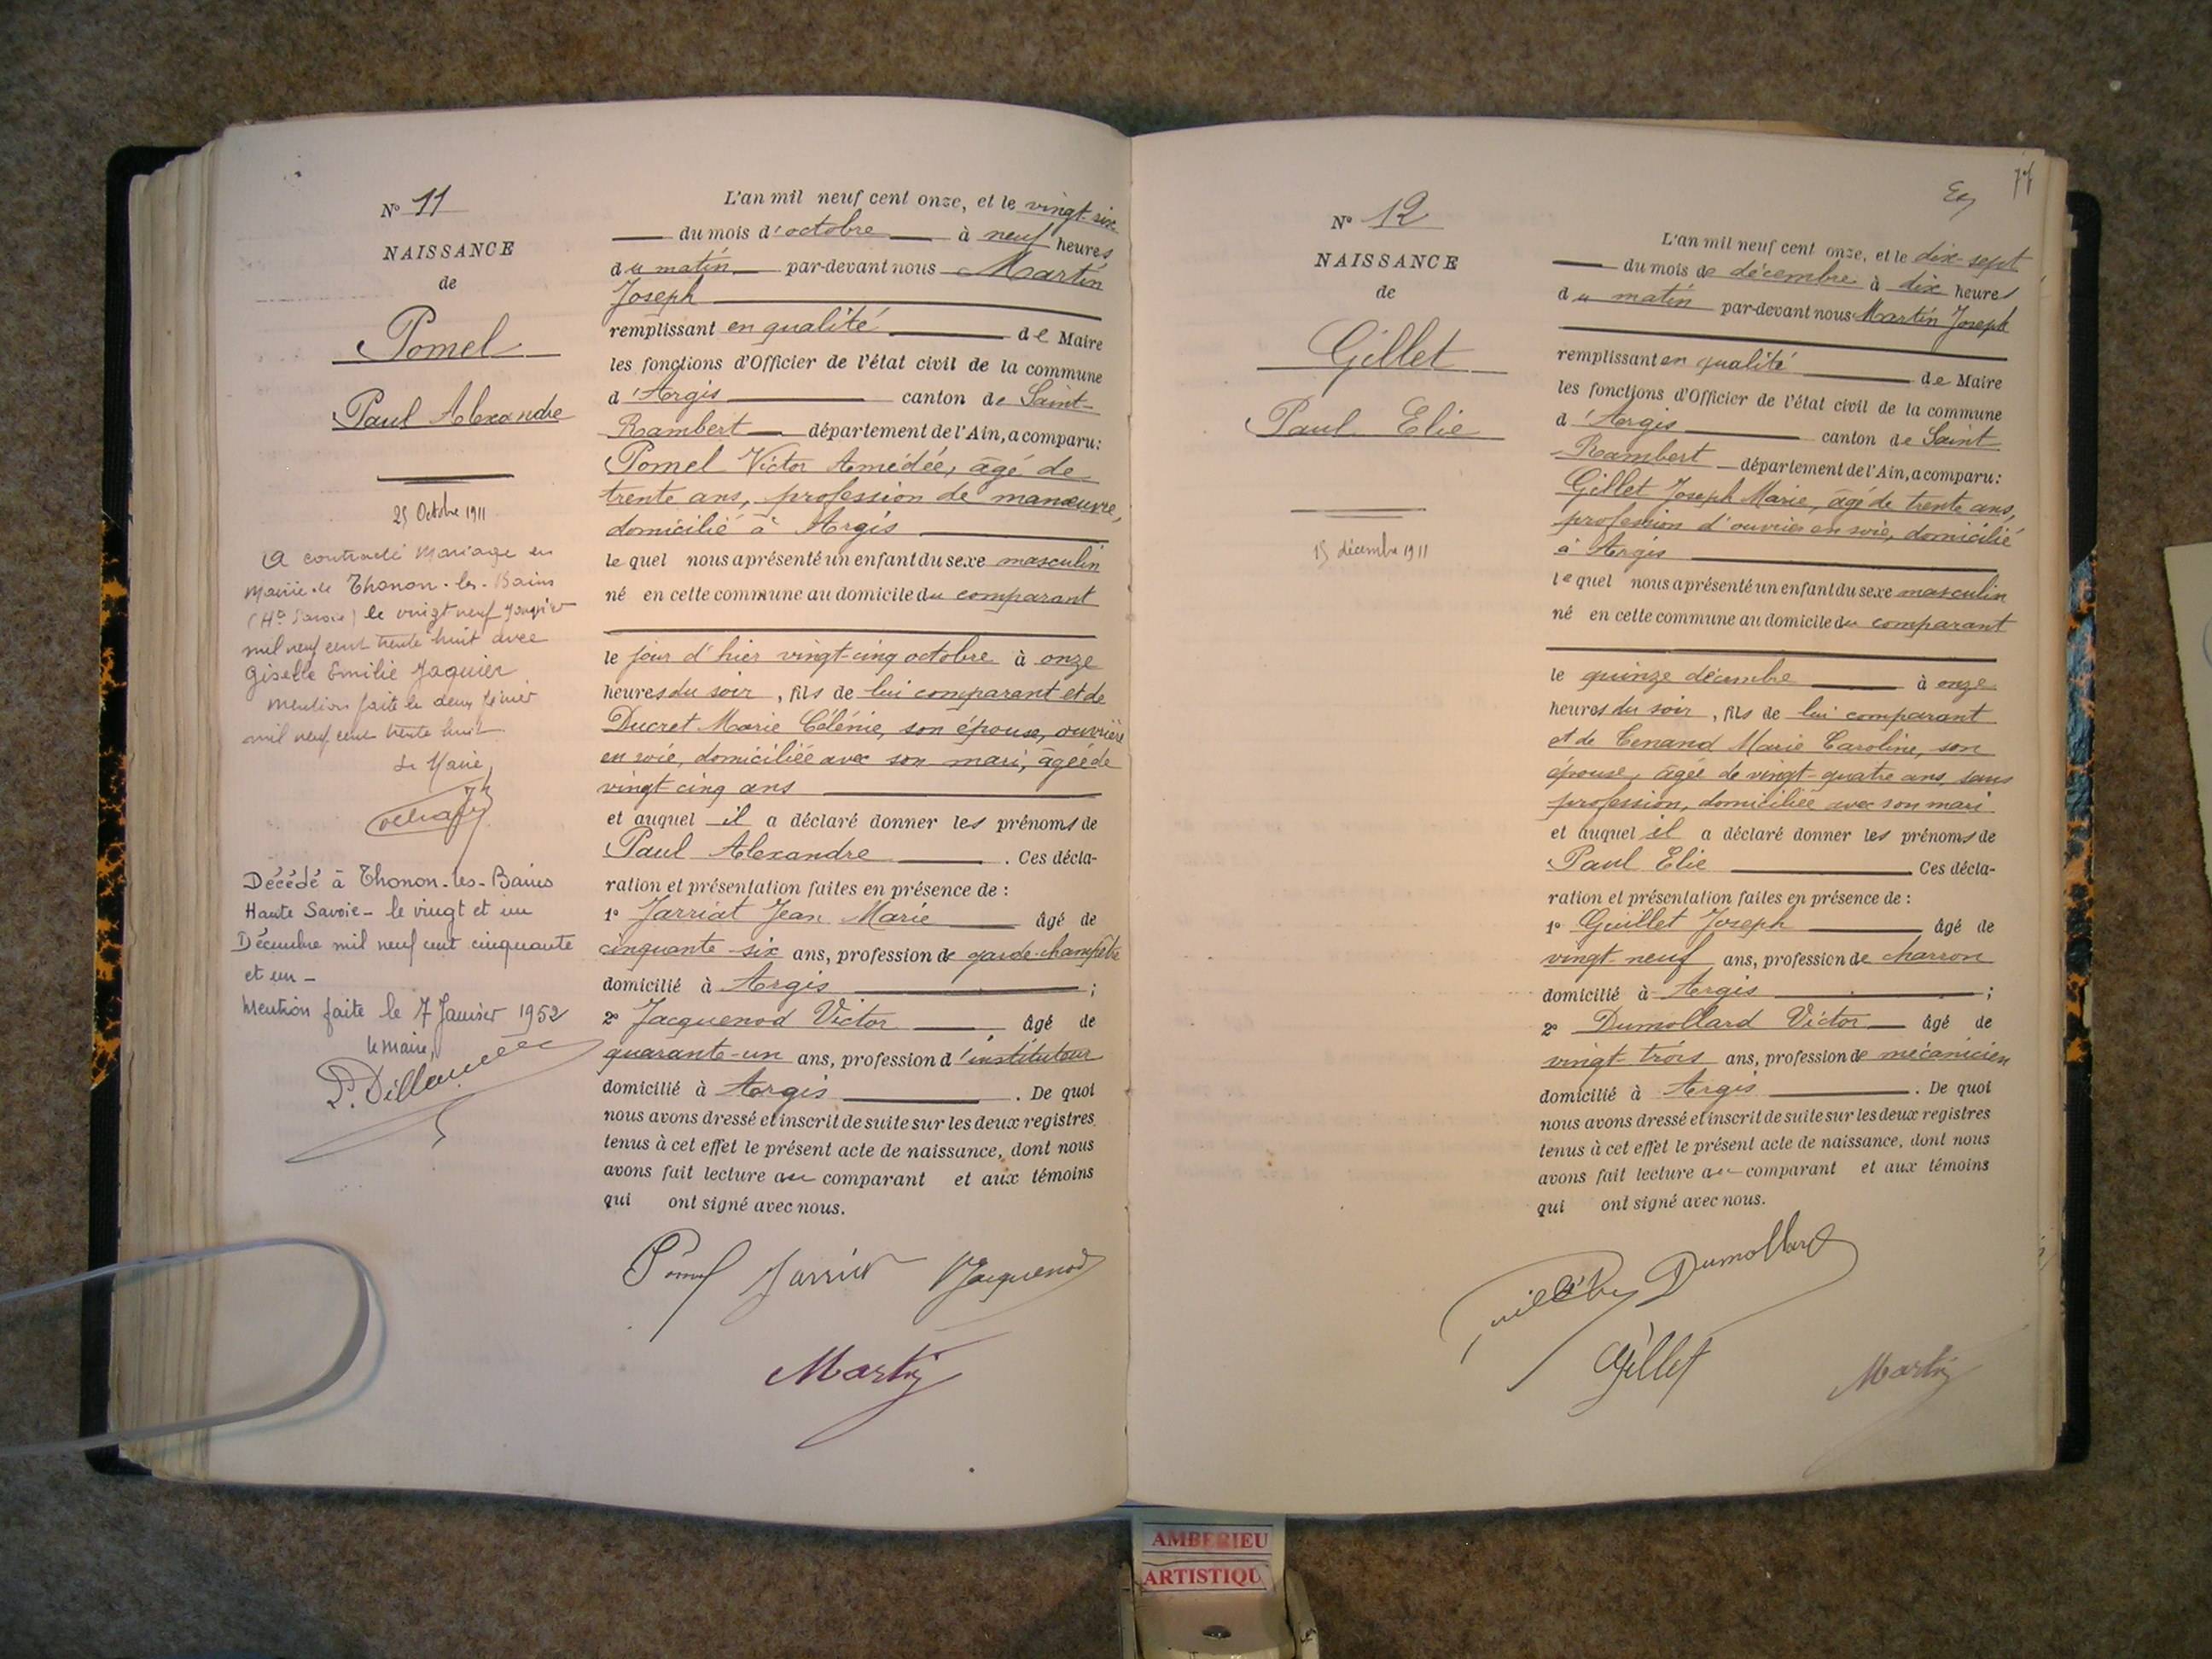 N° 11
NAISSANCE
de
Pomel
Paul Alexandre
25 Octobre 1911
A contracté Mariage en
Mairie de Thonon-les-Bains
(Hte Savoie) le vingt neuf Janvier
mil neuf cent trente huit avec
Giselle Emilie Jaquier
Mention faite le deux février
mil neuf cent trente huit.
Le Maire,
Décédé à Thonon-les-Bains
Haute Savoie - le vingt et un
Décembre mil neuf cent cinquante
et un -
Mention faite le 7 Janvier 1952
le Maire,
L'an mil neuf cent onze, et le vingt-six
du mois d'octobre à neuf heures
du matin par-devant nous Martin
Joseph
remplissant en qualité de Maire
les fonctions d'Officier de l'état civil de la commune
d'Argis canton de Saint-
Rambert département de l'Ain, a comparu:
Pomel Victor Amédée, âgé de
trente ans, profession de manœuvre,
domicilié à Argis
lequel nous a présenté un enfant du sexe masculin
né en cette commune au domicile du comparant
le jour d'hier vingt-cinq octobre à onze
heures du soir, fils de lui comparant et de
Ducret Marie Célénie, son épouse, ouvrière
en soie, domiciliée avec son mari, âgée de
vingt cinq ans
et auquel il a déclaré donner les prénoms de
Paul Alexandre. Ces décla-
ration et présentation faites en présence de :
1° Jarriat Jean Marie âgé de
cinquante-six ans, profession de garde-champêtre
domicilié à Argis ;
2° Jacquenod Victor âgé de
quarante-un ans, profession d'instituteur
domicilié à Argis. De quoi
nous avons dressé et inscrit de suite sur les deux registres
tenus à cet effet le présent acte de naissance, dont nous
avons fait lecture au comparant et aux témoins
qui ont signé avec nous.
Pomel Jarriat VJacquenod
Martin
N° 12
NAISSANCE
de
Gillet
Paul Elie
15 décembre 1911
L'an mil neuf cent onze, et le dix-sept
du mois de décembre à dix heures
du matin par-devant nous Martin Joseph
remplissant en qualité de Maire
les fonctions d'Officier de l'état civil de la commune
d'Argis canton de Saint
Rambert département de l'Ain, a comparu:
Gillet Joseph Marie, âgé de trente ans,
profession d'ouvrier en soie, domicilié
à Argis
lequel nous a présenté un enfant du sexe masculin
né en cette commune au domicile du comparant
le quinze décembre à onze
heures du soir, fils de lui comparant
et de Tenand Marie Caroline, son
épouse, âgée de vingt-quatre ans, sans
profession, domiciliée avec son mari
et auquel il a déclaré donner les prénoms de
Paul Elie Ces décla-
ration et présentation faites en présence de :
1° Guillet Joseph âgé de
vingt-neuf ans, profession de charron
domicilié à Argis ;
2° Dumollard Victor âgé de
vingt-trois ans, profession de mécanicien
domicilié à Argis. De quoi
nous avons dressé et inscrit de suite sur les deux registres
tenus à cet effet le présent acte de naissance, dont nous
avons fait lecture au comparant et aux témoins
qui ont signé avec nous.
Dumollard
Gillet
Martin
AMBERIEU
ARTISTIQU